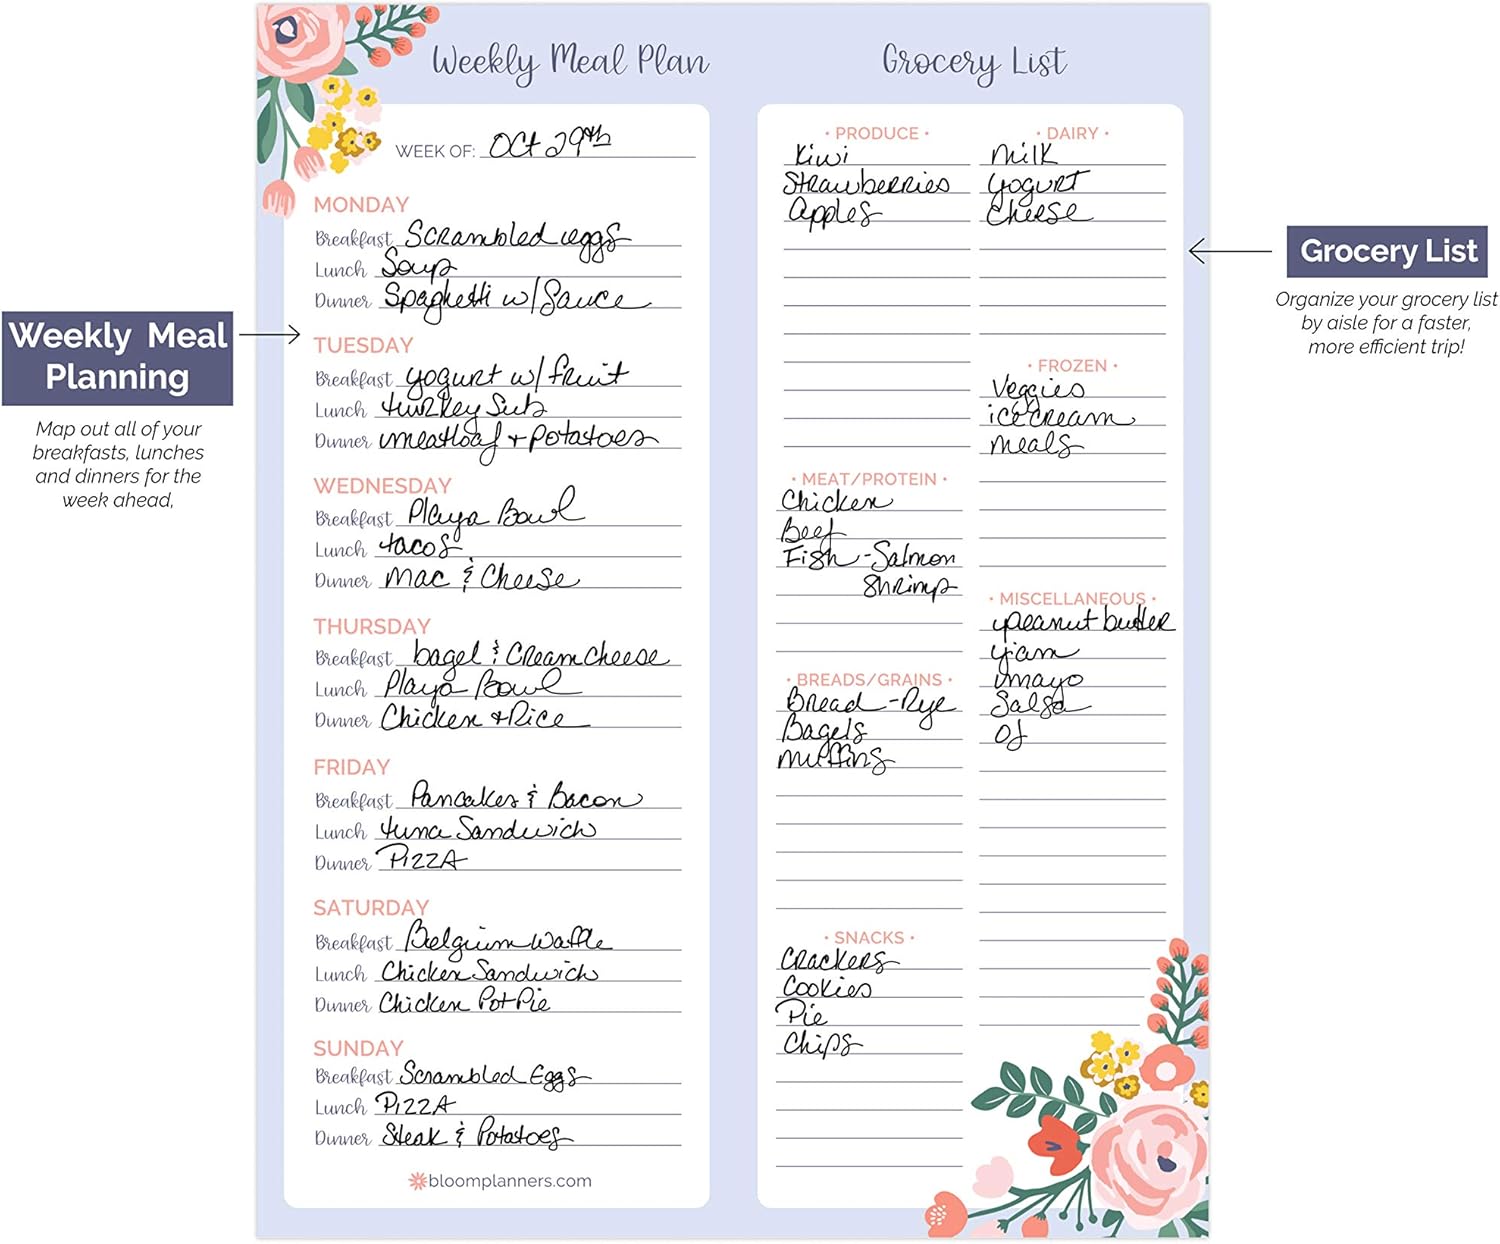 Weekly Meal Plan
WEEK OF: Oct 29th
MONDAY
Breakfast Scrambled eggs
Lunch Soup
Dinner Spaghetti w/ Sauce
TUESDAY
Breakfast yogurt w/ fruit
Lunch turkey Sub
Dinner meatloaf + potatoes
WEDNESDAY
Breakfast Playa Bowl
Lunch tacos
Dinner Mac & Cheese
THURSDAY
Breakfast bagel & Cream cheese
Lunch Playa Bowl
Dinner Chicken + Rice
FRIDAY
Breakfast Pancakes & Bacon
Lunch tuna Sandwich
Dinner PIZZA
SATURDAY
Breakfast Belgium Waffle
Lunch Chicken Sandwich
Dinner Chicken Pot Pie
SUNDAY
Breakfast Scrambled Eggs
Lunch PIZZA
Dinner Steak & Potatoes
bloomplanners.com
Grocery List
• PRODUCE •
Kiwi
Strawberries
apples
• MEAT/PROTEIN •
Chicken
Beef
Fish - Salmon
Shrimp
• BREADS/GRAINS •
Bread - Rye
Bagels
muffins
• SNACKS •
Crackers
Cookies
Pie
Chips
• DAIRY •
Milk
yogurt
cheese
• FROZEN •
Veggies
ice cream
meals
• MISCELLANEOUS •
peanut butter
jam
mayo
Salsa
OJ
Weekly Meal
Planning
Map out all of your
breakfasts, lunches
and dinners for the
week ahead,
Grocery List
Organize your grocery list
by aisle for a faster,
more efficient trip!